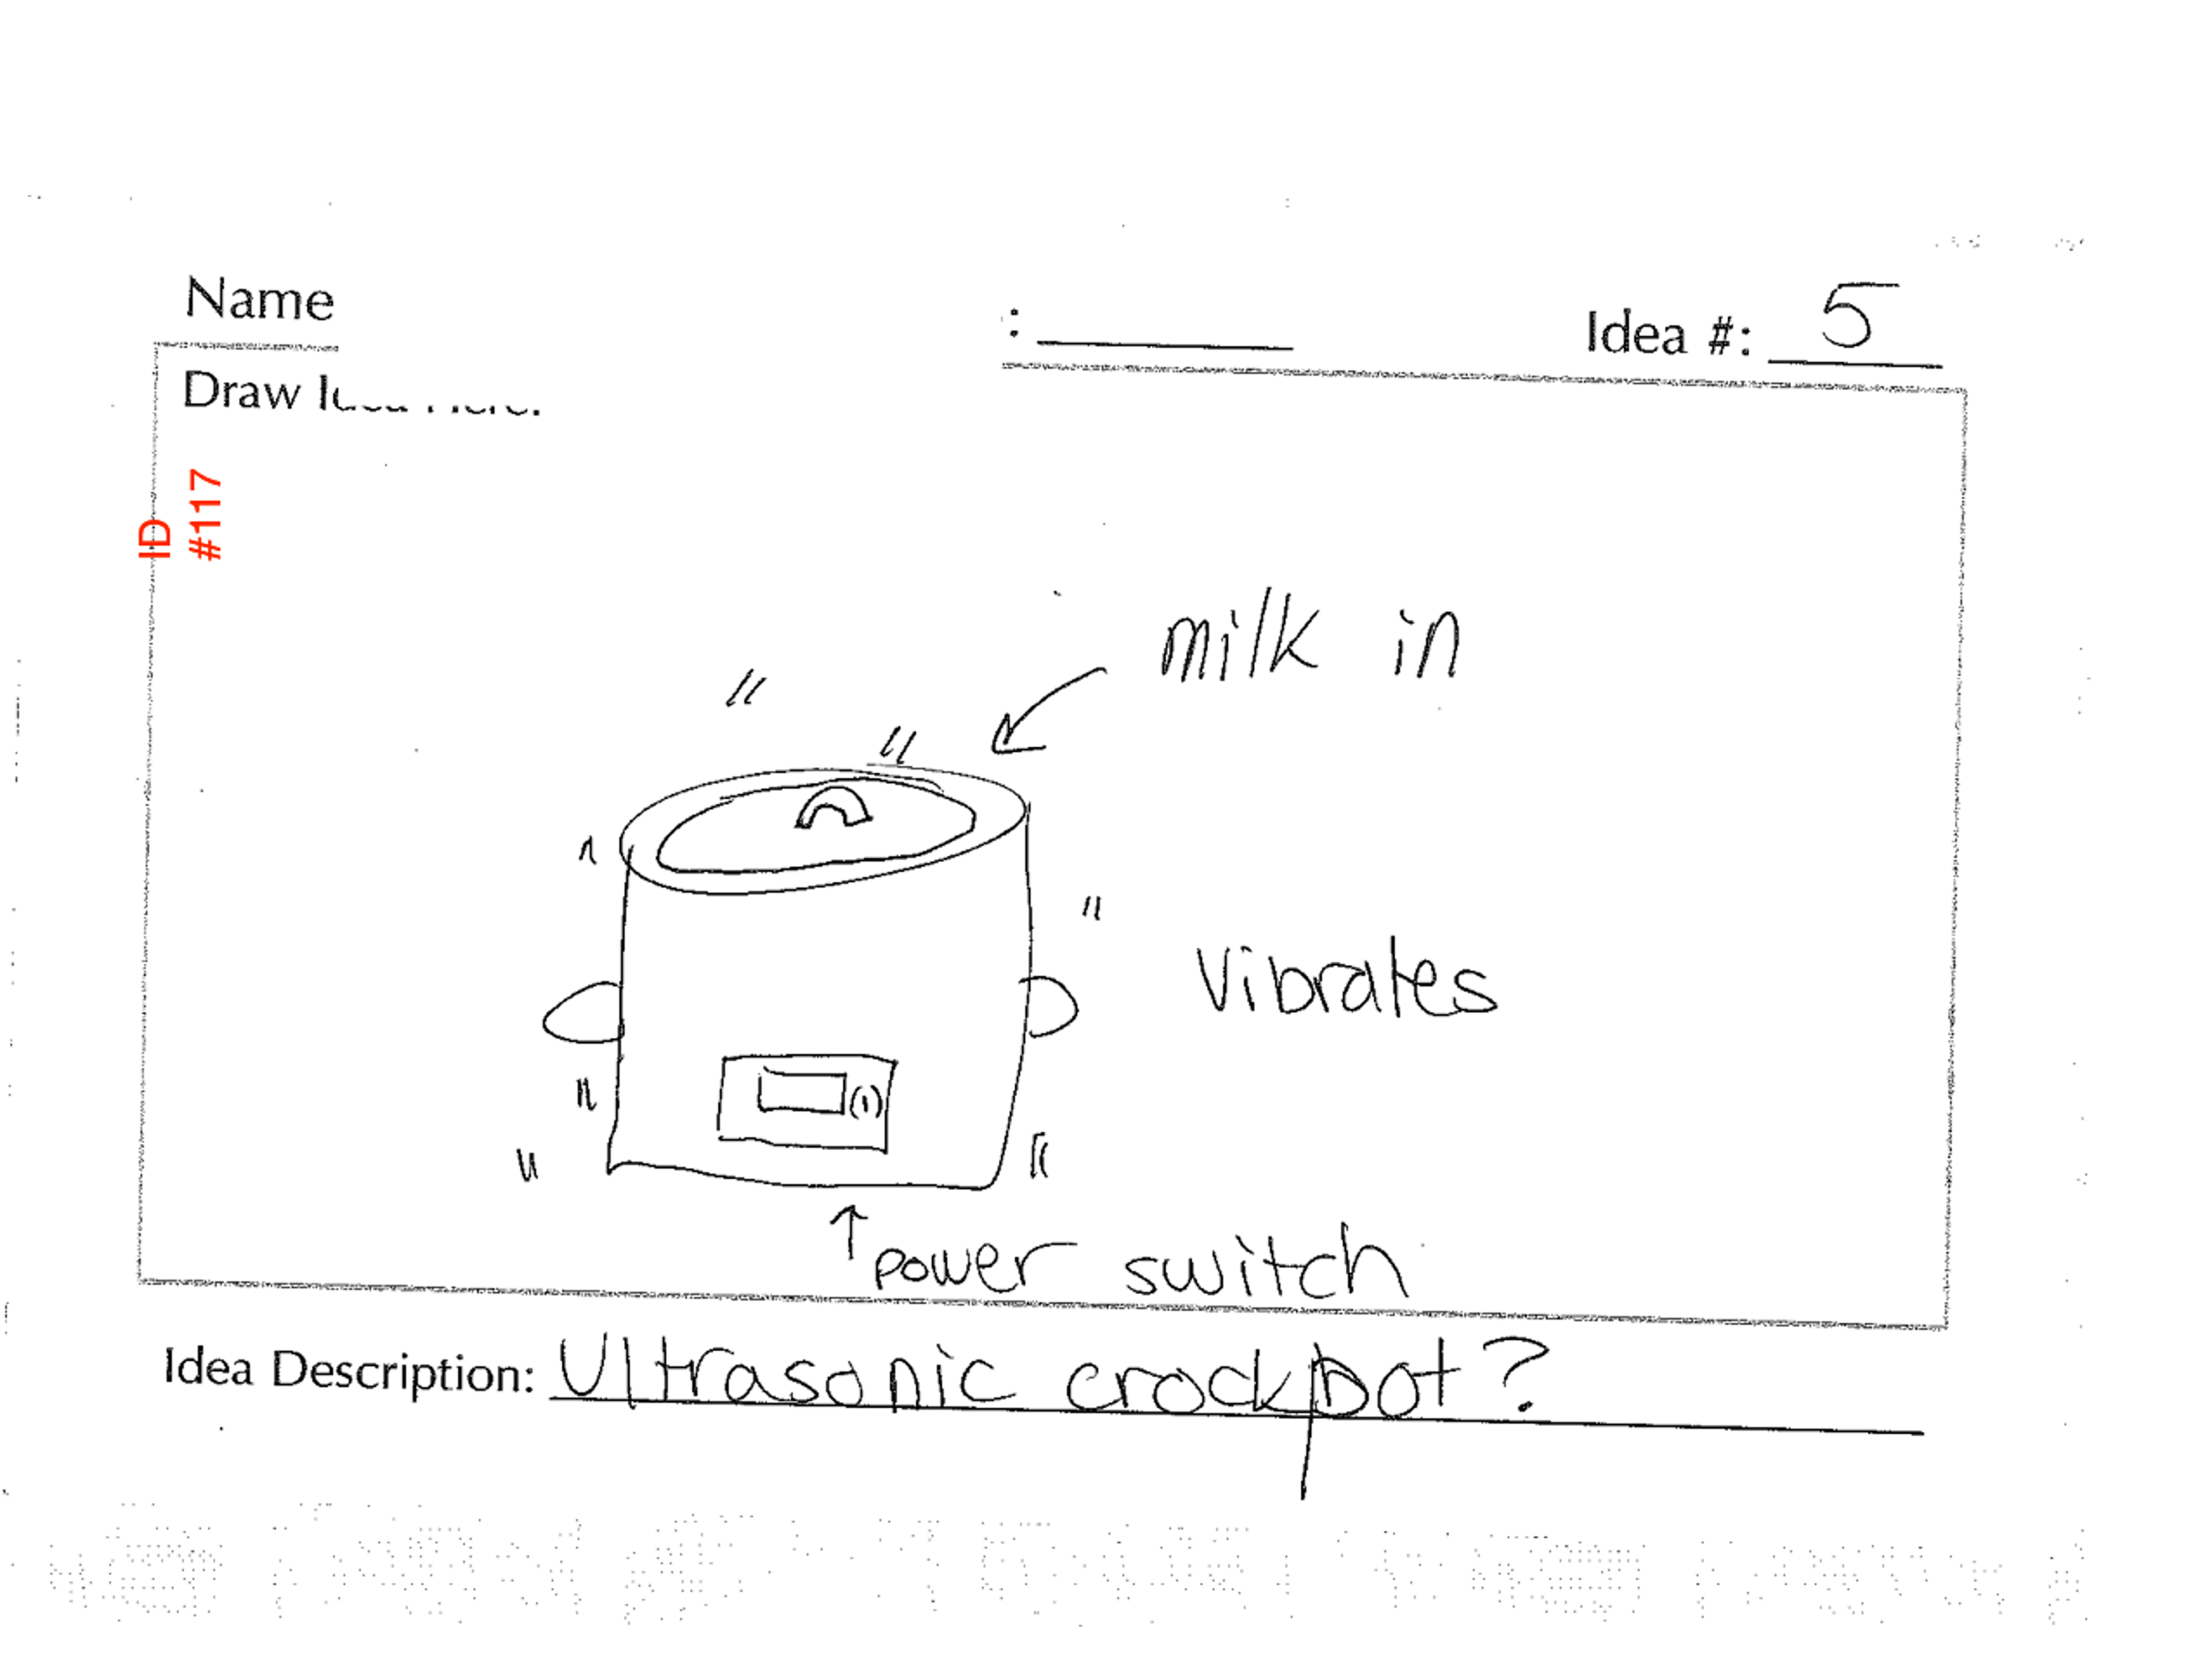 Name : Idea #: 5
Draw
ID
#117
milk in
Vibrates
power switch
Idea Description: Ultrasonic crockpot?